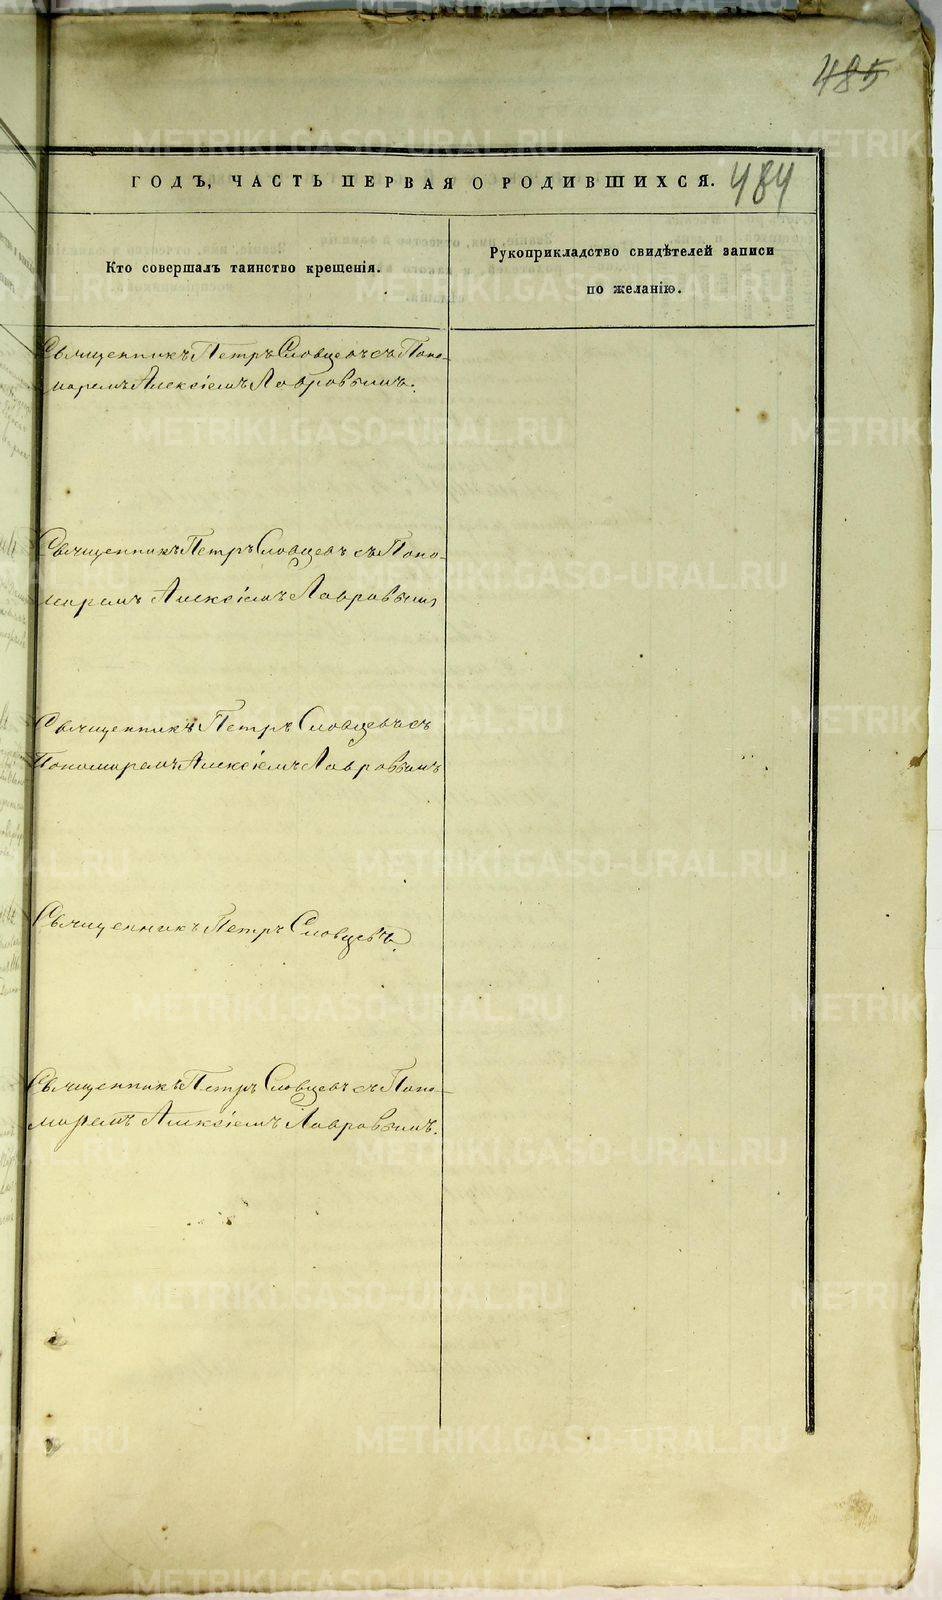 485
ГОДЪ, ЧАСТЬ ПЕРВАЯ О РОДИВШИХСЯ. 484
Кто совершалъ таинство крещенія.
Рукоприкладство свидѣтелей записи
по желанію.
Священникъ Петръ Словцевъ съ Поно-
маремъ Алексіемъ Лавровымъ.
Священникъ Петръ Словцевъ съ Поно-
маремъ Алексіемъ Лавровымъ
Священникъ Петръ Словцевъ съ
Пономаремъ Алексіемъ Лавровымъ
Священникъ Петръ Словцевъ.
Священникъ Петръ Словцевъ съ Поно-
маремъ Алексіемъ Лавровымъ.
METRIKI.GASO-URAL.RU